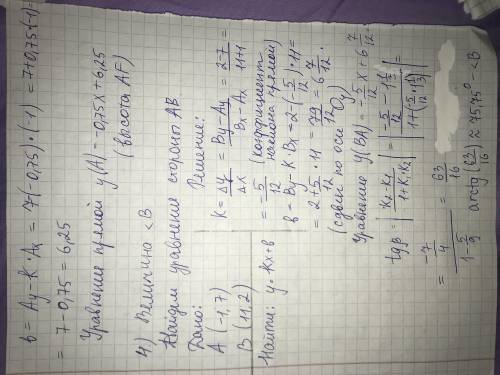 b = Ay - K · Ax = 7(-0,75) · (-1) = 7+0,75·(-1)=
= 7-0,75 = 6,25
Уравнение прямой y(A) = -0,75x+6,25
(высота AF)
4) Величина <B
Найдем уравнение стороны AB
Дано:
A (-1,7)
B (11,2)
Найти: y = kx+b
Решение:
K = Δy/Δx = By-Ay/Bx-Ax = 2-7/11+1 =
= -5/12 (коэффициент
наклона прямой)
b = By - K · Bx = 2-(-5/12) · 11 =
= 2+5/12 · 11 = 79/12 = 6 7/12.
(сдвиг по оси Oy)
Уравнение y(BA) = -5/12 x + 6 7/12.
tgβ = |K2-K1/1+K1·K2| = |-5/12 - 1 1/3/1+(5/12 · 1 1/3)| =
= -7/4/1-5/9 = 63/16
arctg(63/16) ≈ 75,75° - <B